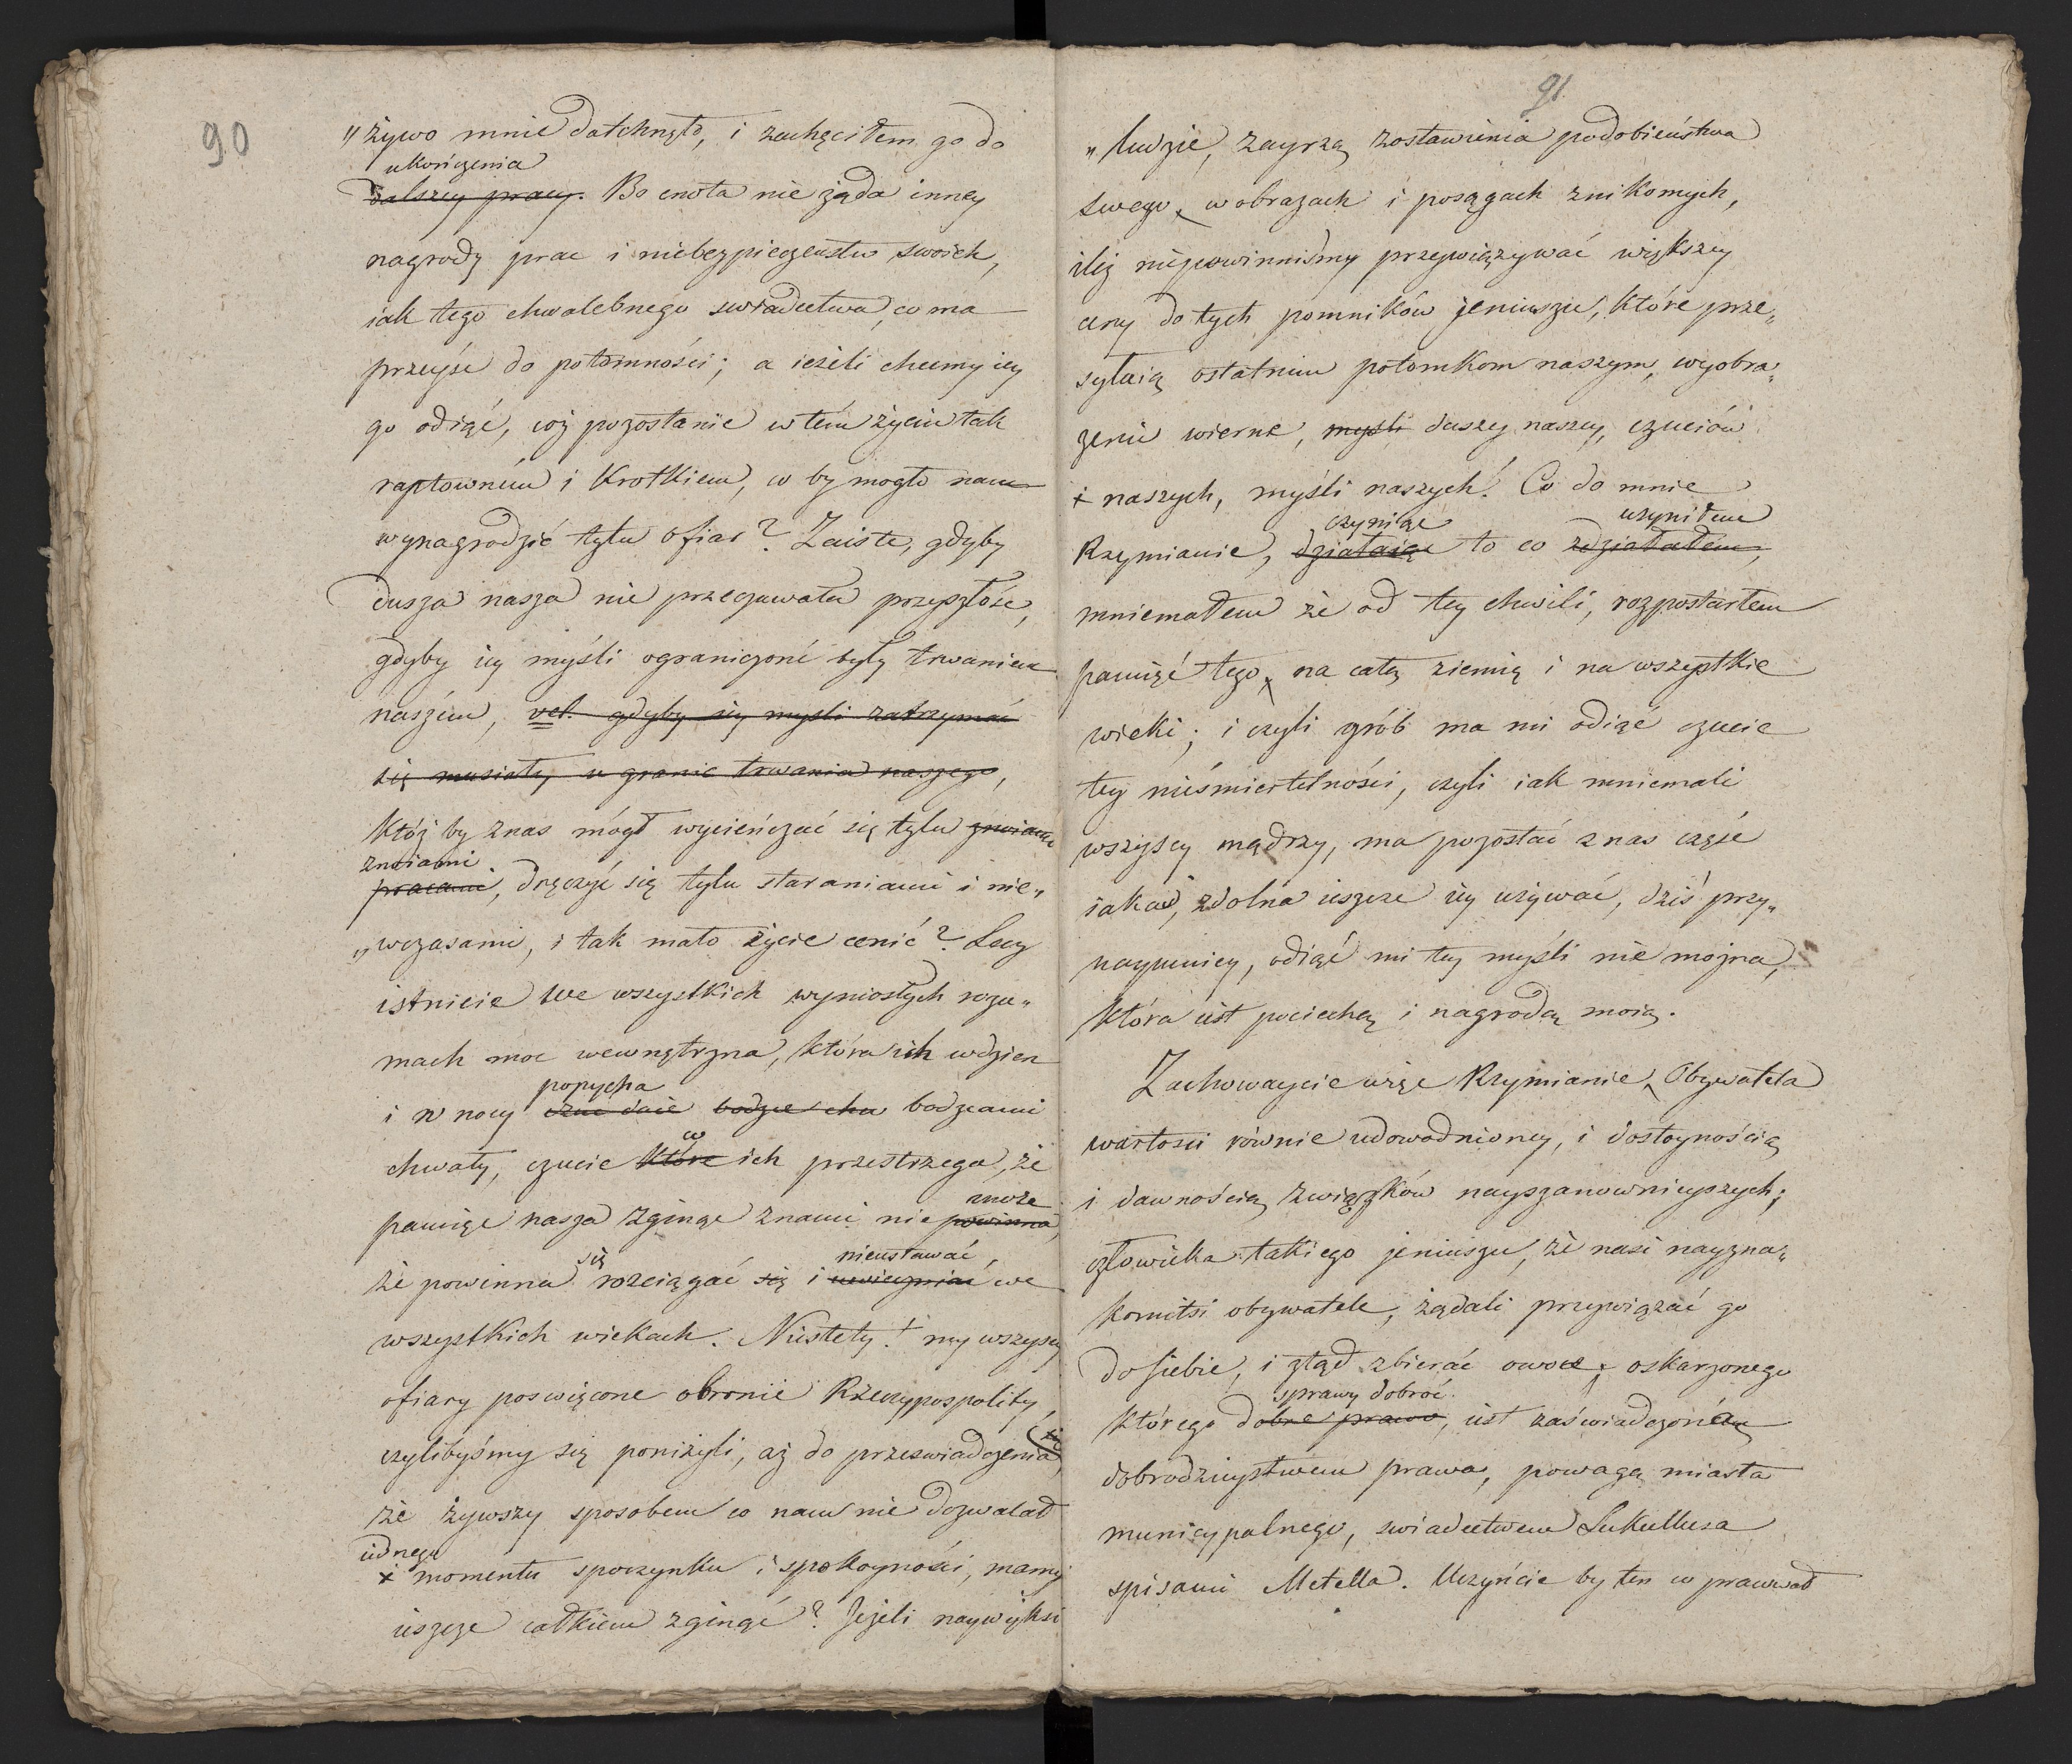 90
„ żywo mnie datchnęło, i zachęciłem go do
ukończenia
dalszey pracy. Bo cnota nie żąda inney
nagrody prac i niebezpieczeństw swoich,
iak tego chwalebnego swiadectwa, co ma
przeyść do potomności; a ieżeli chcemy iey
go odiąć, coż pozostanie w tém życiu tak
raptowném i krotkiem, co by mogło nam
wynagrodzić tylu ofiar? Zaiste, gdyby
dusza nasza nie przeczuwała przyszłość,
gdyby iey myśli ograniczoné były trwaniem
naszém, vel. gdyby iey mysli zatrzymać
się musiały w granic trwania naszego,
Któż by znas mógł wycieńczać się tylu znoiami
znoiami
pracami, dręczyć się tylu staraniami i nie„
„wczasami, i tak mało życie cenić? Lecz
istnieie we wszystkich wyniosłych rozu„
mach moc wewnętrzna, która ich wdzien
popycha
i w nocy czuć daie bodzce chw bodzcami
co
chwały, czucie które ich przestrzega, że
może
pamięć nasza zginąć znami nie powinna,
się nieustawać
że powinna rozciągać się i uwieczniać we
wszystkich wiekach. Niestety! my wszyscy
ofiary poswięcone obronie Rzeczypospolitey,
czylibyśmy się poniżyli, aż do przeswiadczenia się,
że żywszy sposobem co nam nie dozwalał
iednego
i momentu spoczynku i spokoyności, mamy
ieszcze całkiem zginąć? Jeżeli naywięksi
91
„ ludzie, zayrzą zostawienia podobieństwa
swego, w obrazach i posągach znikomych,
ileż niepowinniśmy przywiązywać większey
ceny do tych pomników jeniuszu, które prze„
syłaią ostatnim potomkom naszym, wyobra„
żenie wierne, myśli duszy naszey, czuciów
+ naszych, myśli naszych! Co do mnie
czyniąc uczyniłem
Rzymianie, działaiąc to co zdziałałem,
mniemałem że od tey chwili, rozpostarłem
pamięć tego, na całą ziemię i na wszystkie
wieki; i czyli grób ma mi odiąć czucie
tey nieśmiertelności, czyli iak mniemali
wszyscy mądrzy, ma pozostać z nas część
iakaś, zdolna ieszcze iey używać, dziś przy„
naymniey, odiąć mi tey myśli nie można,
która iest pociechą i nagrodą moią.
Zachowaycie więc Rzymianie, Obywatela
wartosci równie udowodnioney, i dostoynością
i dawnością związków nayszanownieyszych;
człowieka takiego jeniuszu, że nasi nayzna„
komitsi obywatele, żądali przywiązać go
do siebie, i ztąd zbierać owoce; oskarzonego
sprawy dobroć
którego dobre prawo, iest zaświadczoném
dobrodzieystwem prawa, powagą miasta
municypalnego, swiadectwem Lukullusa
spisami Metella. Uczyńcie by ten co prawował